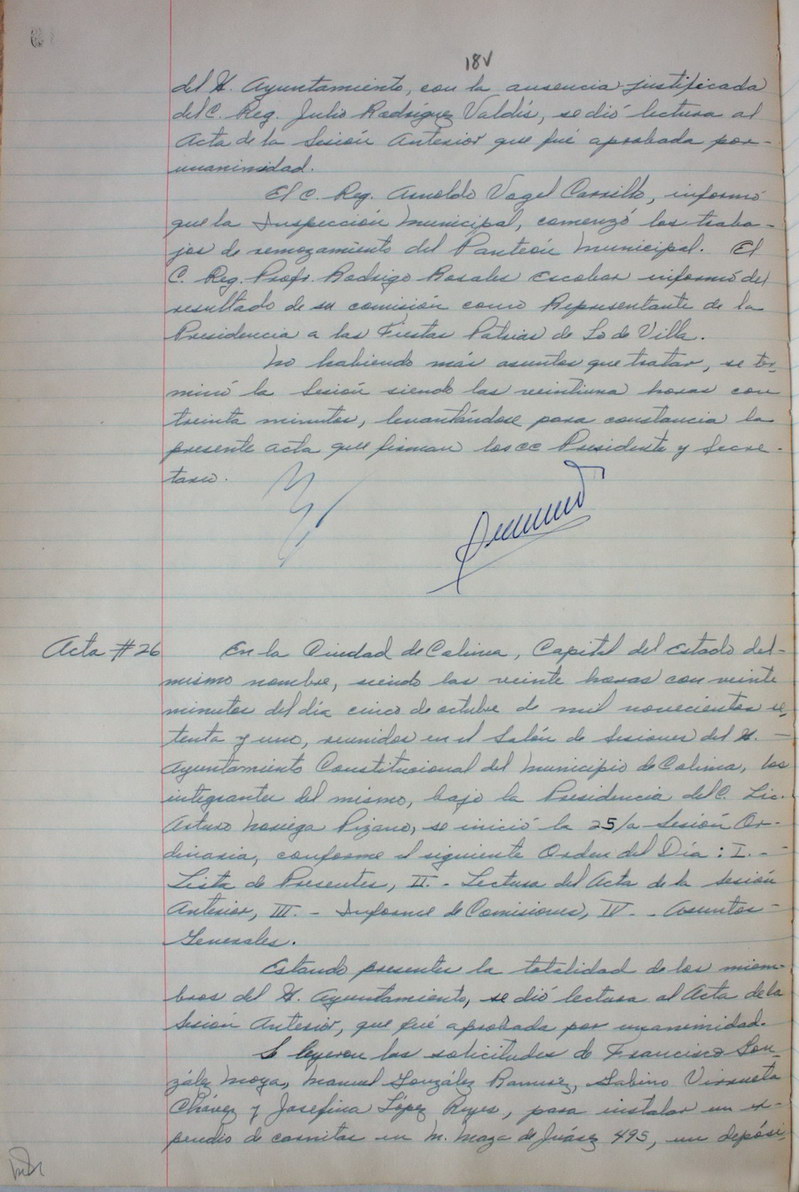 18V
del H. Ayuntamiento, con la ausencia justificada
del C. Reg. Julio Rodríguez Valdés, se dió lectura al
Acta de la Sesión Anterior que fué aprobada por-
unanimidad.
El C. Reg. Arnoldo Vogel Carrillo, informó
que la Inspección Municipal, comenzó los traba-
jos de remozamiento del Panteón Municipal. El
C. Reg. Profr. Rodrigo Rosales Escobar informó del
resultado de su comisión como Representante de la
Presidencia a las Fiestas Patrias de Lo de Villa.
No habiendo más asuntos que tratar, se ter-
minó la Sesión siendo las veintiuna horas con
treinta minutos, levantándose para constancia la
presente acta que firman los CC Presidente y Secre-
tario.
Acta #26
En la Ciudad de Colima, Capital del Estado del-
mismo nombre, siendo las veinte horas con veinte
minutos del día cinco de octubre de mil novecientos se-
tenta y uno, reunidos en el Salón de Sesiones del H. -
Ayuntamiento Constitucional del Municipio de Colima, los
integrantes del mismo, bajo la Presidencia del C. Lic.
Arturo Noriega Pizano, se inició la 25/a Sesión Or-
dinaria, conforme al siguiente Orden del Día: I. -
Lista de Presentes, II. - Lectura del Acta de la Sesión
Anterior, III. - Informe de Comisiones, IV. - Asuntos -
Generales.
Estando presentes la totalidad de los miem-
bros del H. Ayuntamiento, se dió lectura al Acta de la
Sesión Anterior, que fué aprobada por unanimidad.
Se leyeron las solicitudes de Francisco Gon-
zález Moya, Manuel González Ramírez, Sabino Virrueta
Chávez y Josefina López Reyes, para instalar un ex-
pendio de carnitas en M. Maza de Juárez 495, un depósi-